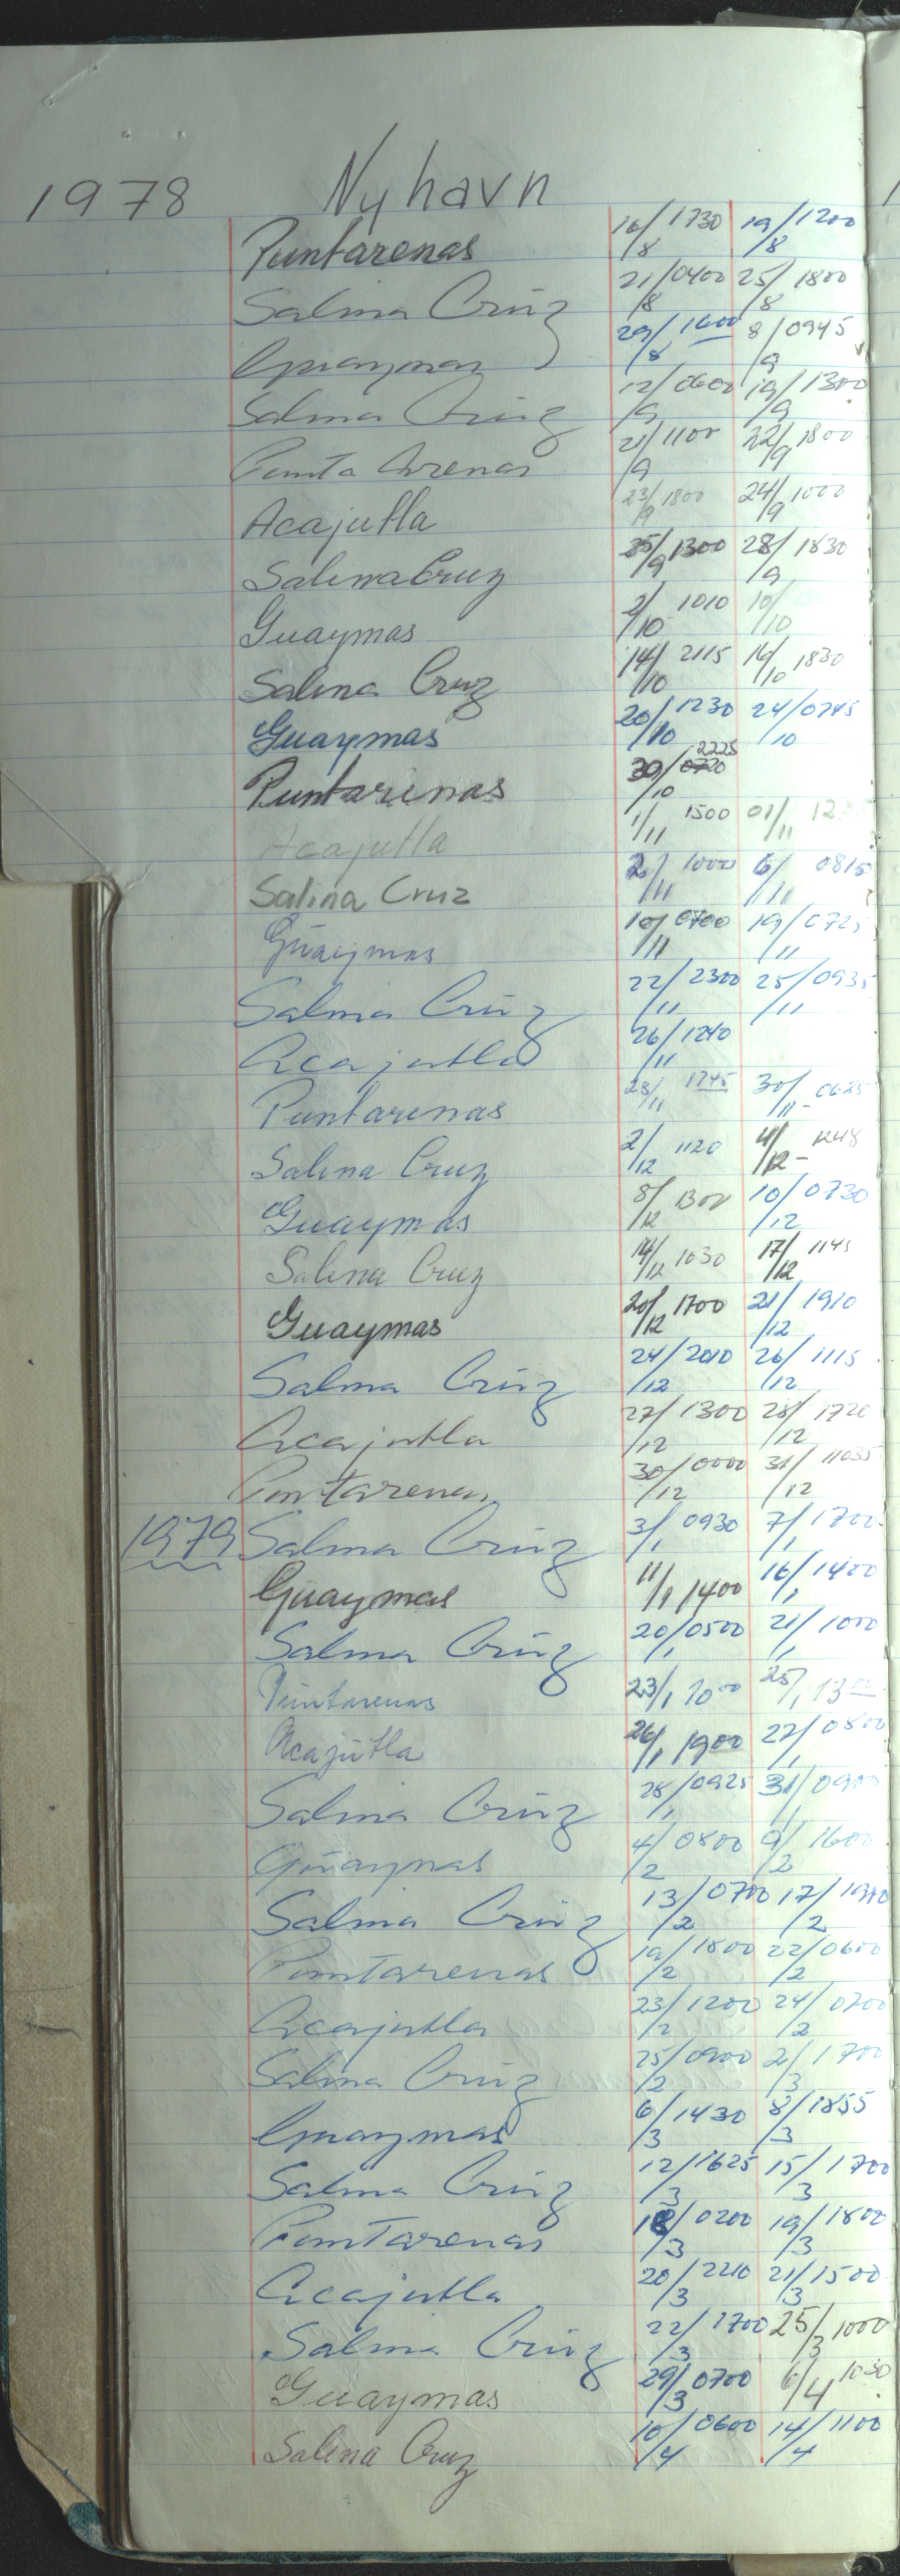 1978 Nyhavn
Puntarenas 16/8 1730 19/8 1200
Salina Crúz 21/8 0400 25/8 1800
Guaymas 29/8 1600 8/9 0945
Salina Crúz 12/9 0600 19/9 1300
Punta Arenas 21/9 1100 22/9 1800
Acajutla 23/9 1800 24/9 1000
Salina Cruz 25/9 1300 28/9 1830
Guaymas 2/10 1010 10/10
Salina Cruz 14/10 2115 16/10 1830
Guaymas 20/10 1230 24/10 0745
Puntarenas 30/10 0720 2225
Acajutla 1/11 1500 01/11
Salina Cruz 2/11 1000 6/11 0815
Gúaymas 10/11 0700 19/11 0725
Salina Crúz 22/11 2300 25/11 0935
Acajutla 26/11 1240
Puntarenas 28/11 1745 30/11 0625
Salina Cruz 2/12 1120 4/12 1248
Guaymas 8/12 1300 10/12 0730
Salina Cruz 14/12 1030 17/12 1145
Guaymas 20/12 1700 21/12 1910
Salina Crúz 24/12 2010 26/12 1115
Acajutla 27/12 1300 28/12 1720
Puntarenas 30/12 0000 31/12
1979 Salina Crúz 3/1 0930 7/1 1700
Gúaymas 11/1 1400 16/1 1400
Salina Crúz 20/1 0500 21/1 1000
Púntarenas 23/1 1000 25/1 1300
Acajútla 26/1 1900 27/1 0800
Salina Crúz 28/1 0925 31/1 0900
Gúaymas 4/2 0800 9/2 1600
Salina Crúz 13/2 0700 17/2 1940
Puntarenas 19/2 1800 22/2 0600
Acajutla 23/2 1200 24/2 0700
Salina Crúz 25/2 0900 2/3 1700
Guaymas 6/3 1430 8/3 1855
Salina Crúz 12/3 1625 15/3 1700
Puntarenas 18/3 0200 19/3 1800
Acajutla 20/3 2210 21/3 1500
Salina Crúz 22/3 1700 25/3 1000
Guaymas 29/3 0700 6/4 1030
Salina Cruz 10/4 0600 14/4 1100